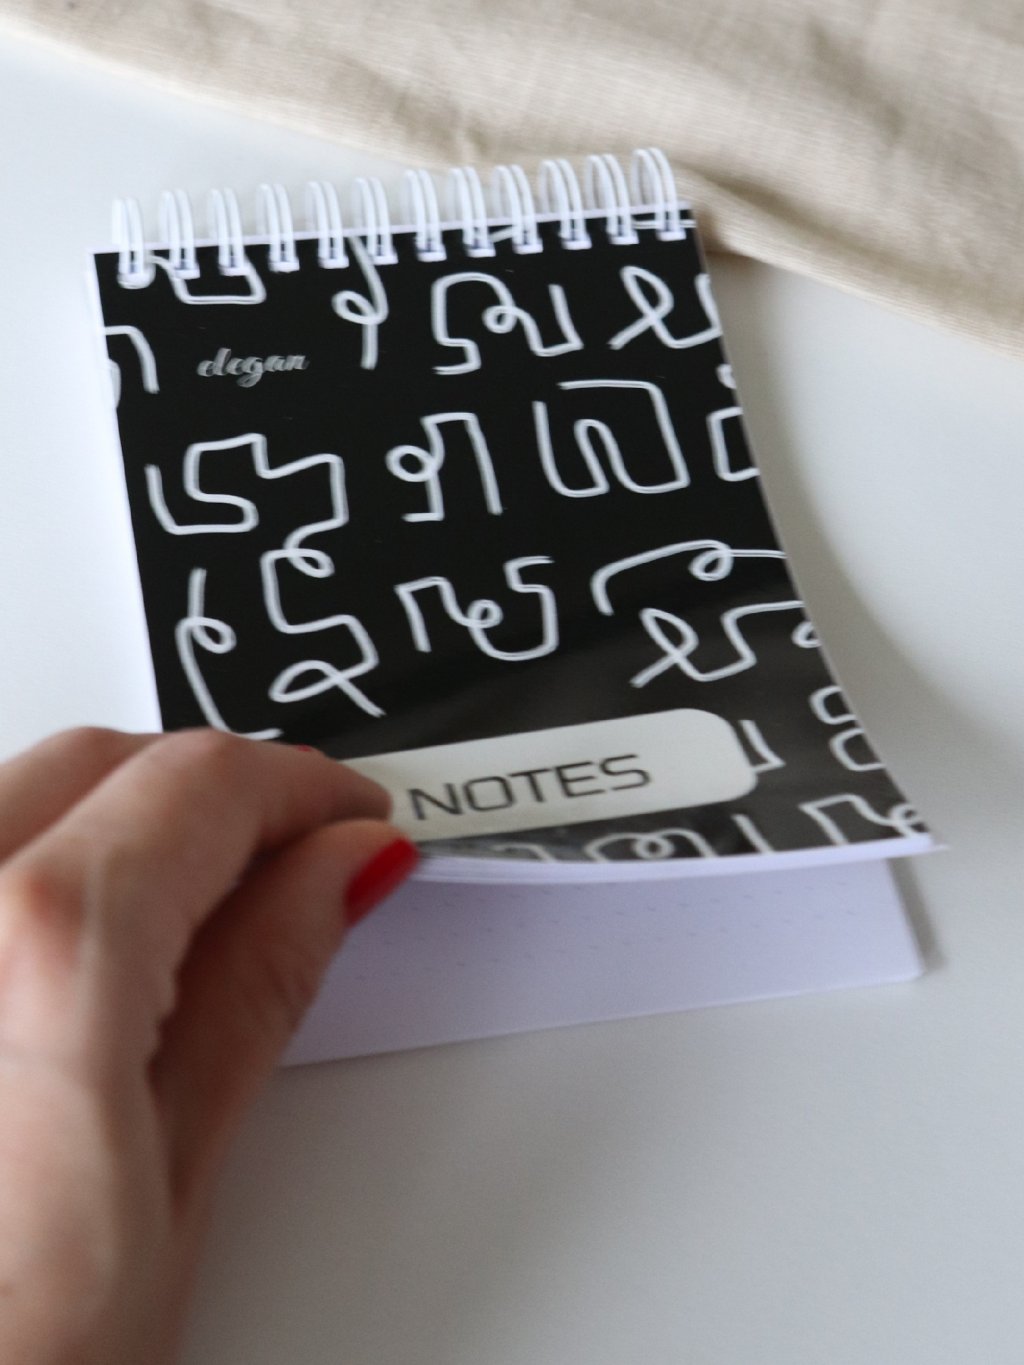 elegan
NOTES